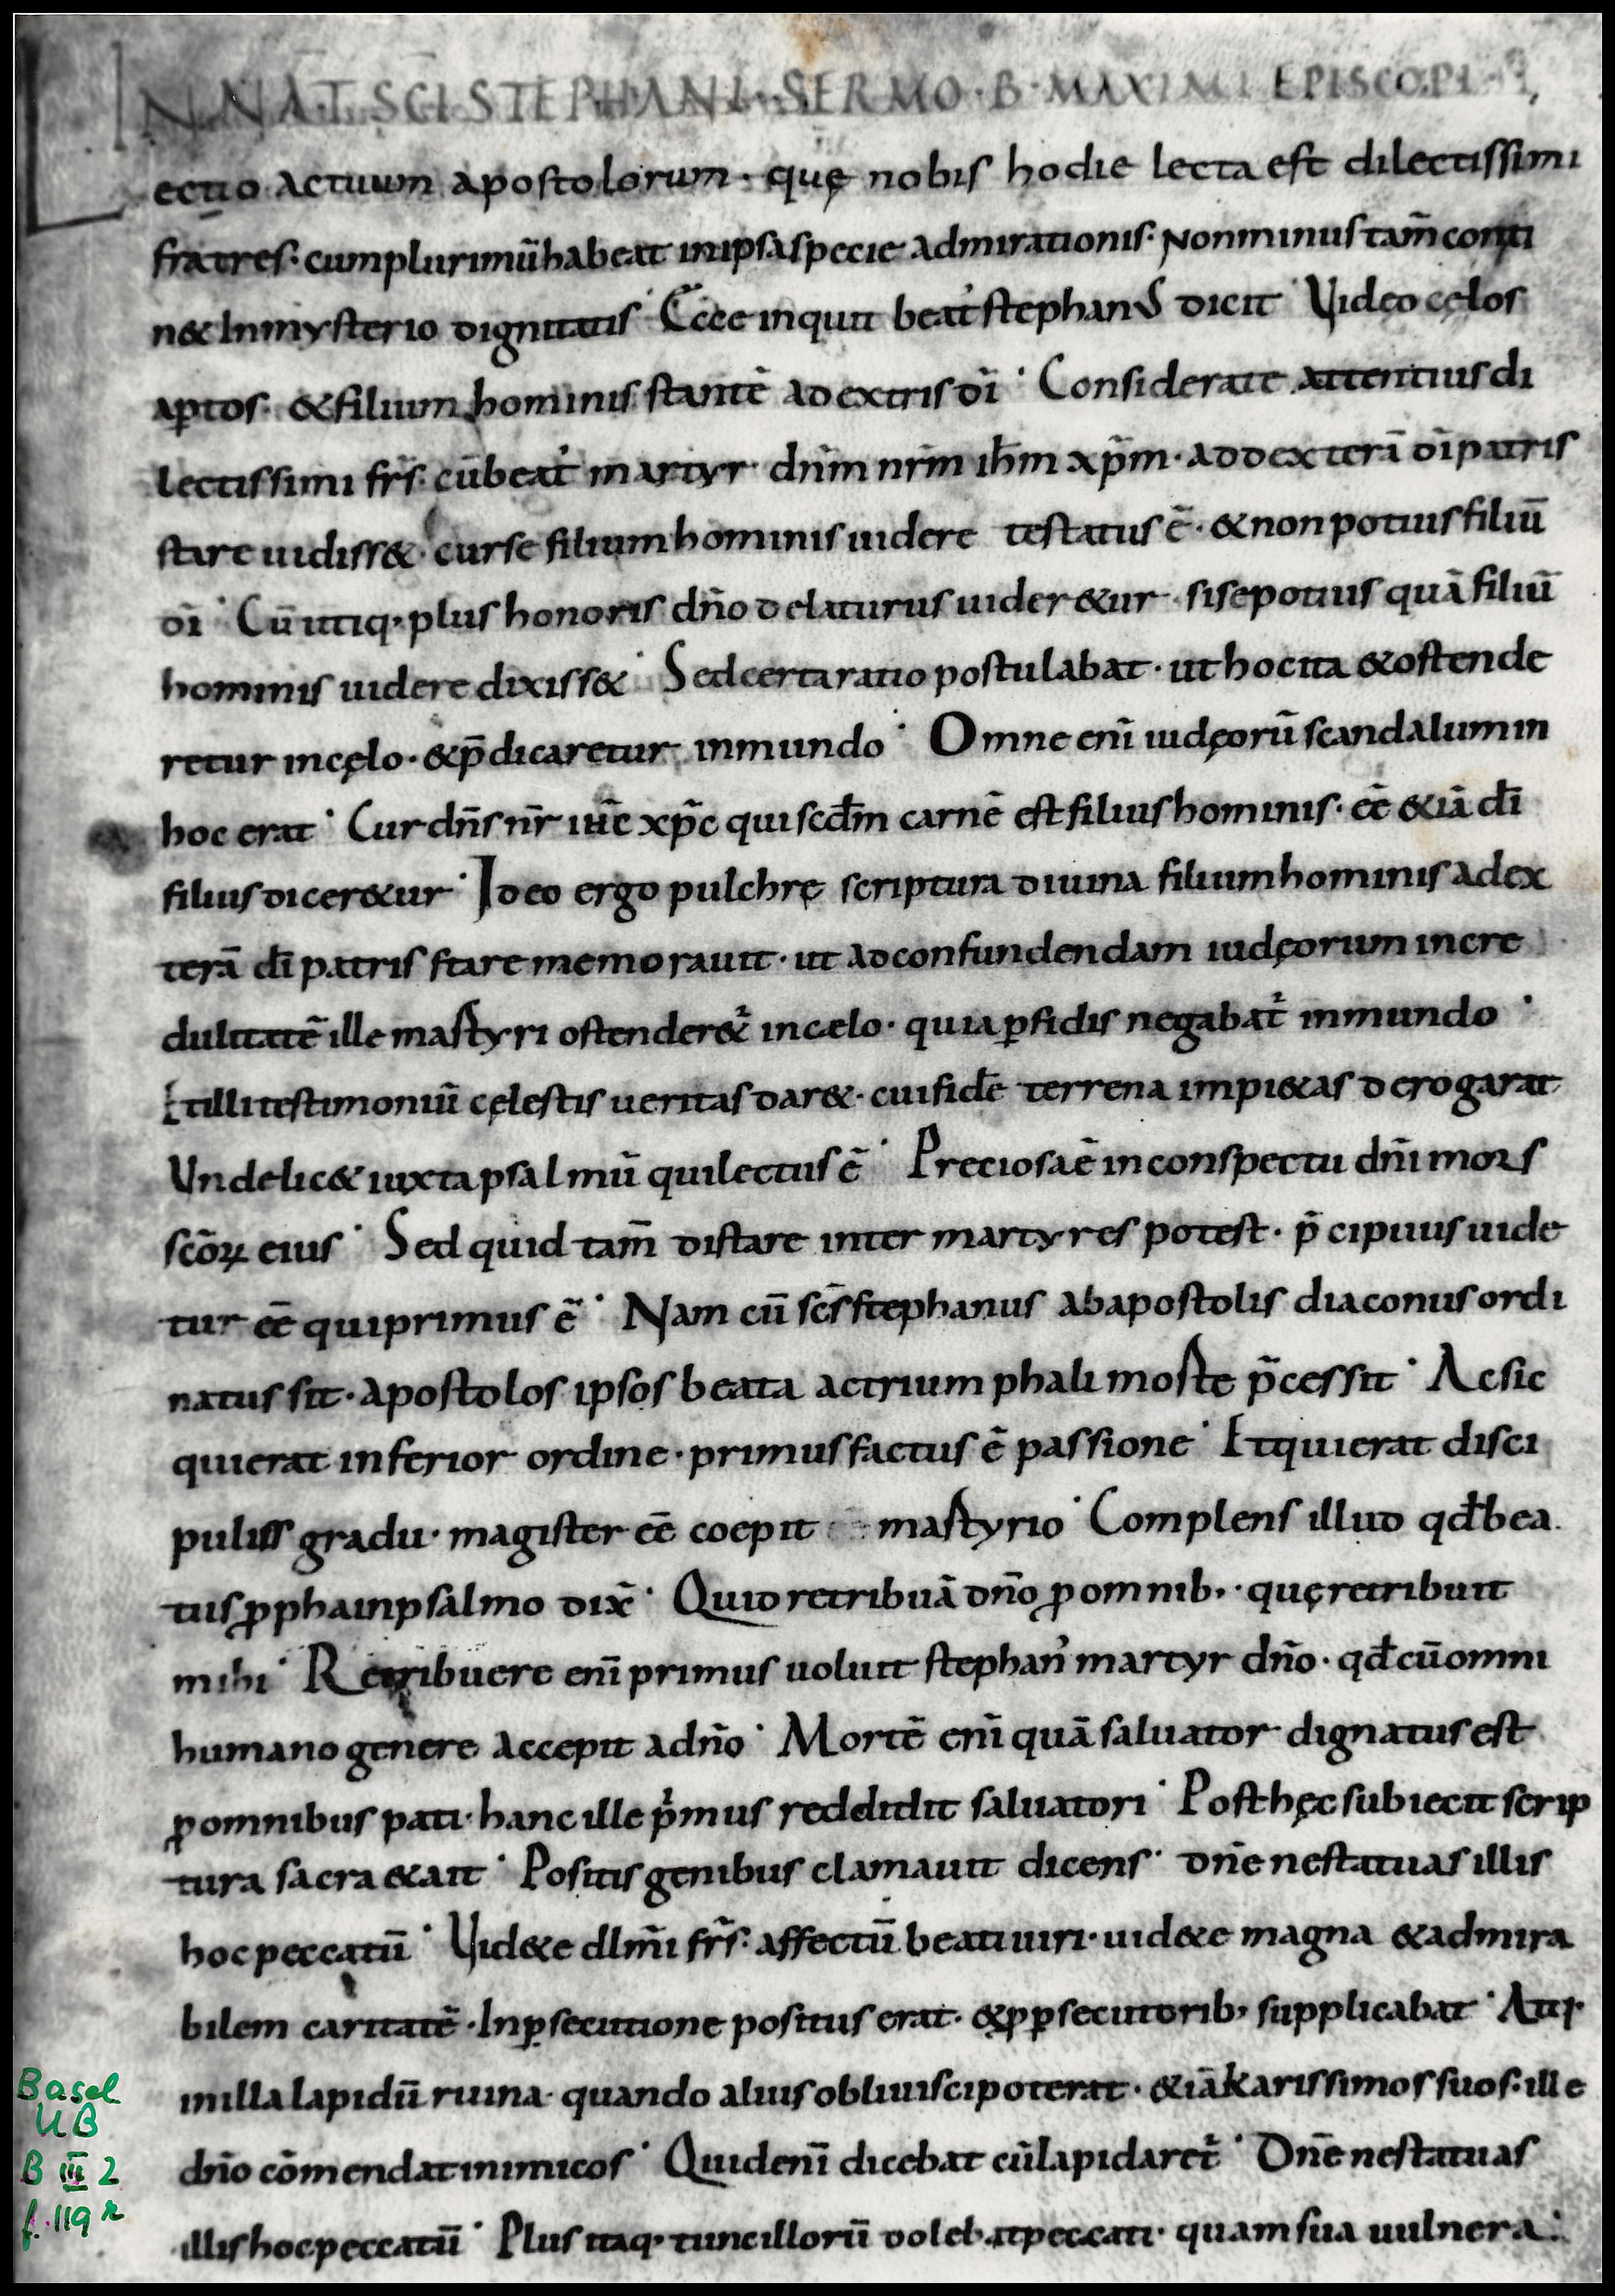 IN NAT SCI STEPHANI · SERMO · B · MAXIMI EPISCOPI ·
Lectio actuum apostolorum · quę nobis hodie lecta est dilectissimi
fratres · cum plurimū habeat in ipsa specie admirationis · Non minus tam̄ conti
n& In mysterio dignitatis · Ecce inquit beat' stephanus dicit · Video cęlos
aptos · & filium hominis stantē ad extris dī · Considerate attentius di
lectissimi frs̄ · cū beat' martyr dnm̄ nrm̄ ihm̄ xpm̄ · ad dexterā dī patris
stare uidiss& · cur se filium hominis uidere testatus ē · & non potius filiū
dī · Cū utiq· plus honoris dño delaturus uider&ur · si se potius quā filiū
hominis uidere dixiss& · Sed certa ratio postulabat · ut hoc ita & ostende
retur in cęlo · & p̄dicaretur in mundo · Omne enī iudęorū scandalum in
hoc erat · Cur dns̄ nr̄ ihc̄ xpc̄ qui scdm̄ carnē est filius hominis · eē &iā dī
filius dicer&ur · Ideo ergo pulchrę scriptura diuina filium hominis ad ex
terā dī patris stare memorauit · ut ad confundendam iudęorum incre
dulitatē ille martyri ostender&' in caelo · qui a ꝑfidis negabat' in mundo ·
Et illi testimoniū cęlestis ueritas dar& · cui fidē terrena impi&as derogarat
Unde lic& iuxta psalmū qui lectus ē · Preciosa ē in conspectu dñi mors
scōꝝ eius · Sed quid tam̄ distare inter martyres potest · p̄cipuus uide
tur eē qui primus ē · Nam cū scs̄ stephanus ab apostolis diaconus ordi
natus sit · apostolos ipsos beata ac triumphali morte p̄cessit · Ac sic
qui erat inferior ordine · primus factus ē passione · Et qui erat disci
puliss gradu · magister eē coepit martyrio · Complens illud qđ bea
tus ꝓpha in psalmo dix̄ · Quid retribuā dño ꝓ omnib· · quę retribuit
mihi · Retribuere enī primus uoluit stephan' martyr dño · qđ cū omni
humano genere accepit a dño · Mortē enī quā saluator dignatus est
ꝓ omnibus pati · hanc ille p'mus reddidit saluatori · Post hęc subiecit scrip
tura sacra & ait · Positis genibus clamauit dicens · dñe ne statuas illis
hoc peccatū · Vid&e dlm̄i frs̄ · affectū beati uiri · uid&e magna & admira
bilem caritatē · In ꝑsecutione positus erat · & ꝓ ꝑsecutorib· supplicabat · Atq·
in illa lapidū ruina · quando alius obliuisci poterat · &iā karissimos suos · ille
dño cōmendat inimicos · Quid enī dicebat cū lapidaret' · Dñe ne statuas
illis hoc peccatū · Plus itaq· tunc illorū dolebat peccati · quam sua uulnera :
Basel
UB
B III 2
f. 119 r